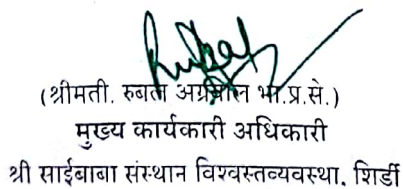 (श्रीमती. रुबल अग्रवाल भा.प्र.से.)
मुख्य कार्यकारी अधिकारी
श्री साईबाबा संस्थान विश्वस्तव्यवस्था, शिर्डी